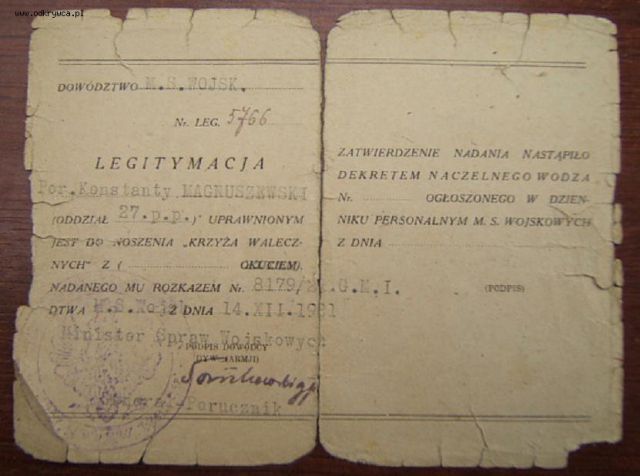 www.odkrywca.pl
DOWÓDZTWO M.S.WOJSK.
Nr. LEG. 5766
LEGITYMACJA
Por. Konstanty MAGNUSZEWSKI
(ODDZIAŁ 27.p.p.) UPRAWNIONYM
JEST DO NOSZENIA „KRZYŻA WALECZ-
NYCH” Z ( OKUCIEM).
NADANEGO MU ROZKAZEM Nr 8179/ G.M.I.
DTWA M.S.Wojsk Z DNIA 14.XII.1921
Minister Spraw Wojskowych
PODPIS DOWÓDCY
DYW. (ARMJI)
Generał-Porucznik
ZATWIERDZENIE NADANIA NASTĄPIŁO
DEKRETEM NACZELNEGO WODZA
Nr. OGŁOSZONEGO W DZIEN-
NIKU PERSONALNYM M. S. WOJSKOWYCH
Z DNIA
(PODPIS)